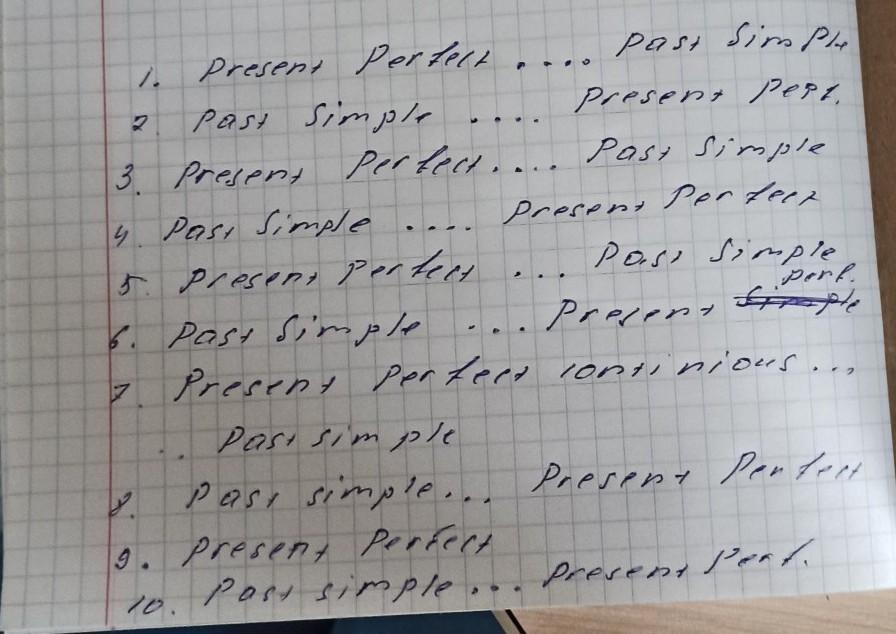 1. Present Perfect .... Past Simple
2. Past Simple .... Present Perf.
3. Present Perfect .... Past Simple
4. Past Simple .... Present Perfect
5. Present Perfect ... Past Simple
6. Past Simple ... Present Perf. Simple
7. Present Perfect continious ...
.. Past simple
8. Past simple... Present Perfect
9. Present Perfect
10. Past simple... Present Perf.